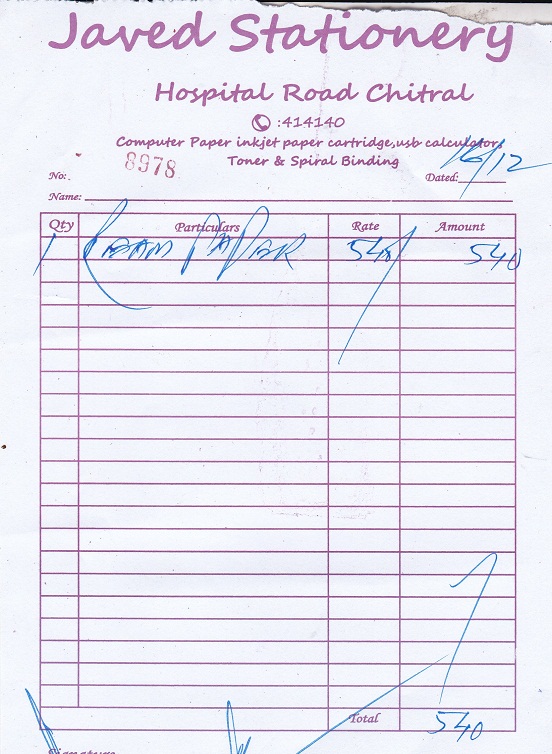 Javed Stationery
Hospital Road Chitral
:414140
Computer Paper inkjet paper cartridge,usb calculators
Toner & Spiral Binding
No: 8978 Dated: 16/12
Name:
Qty Particulars Rate Amount
1 REAM PAPER 540 540
Total 540
Signature